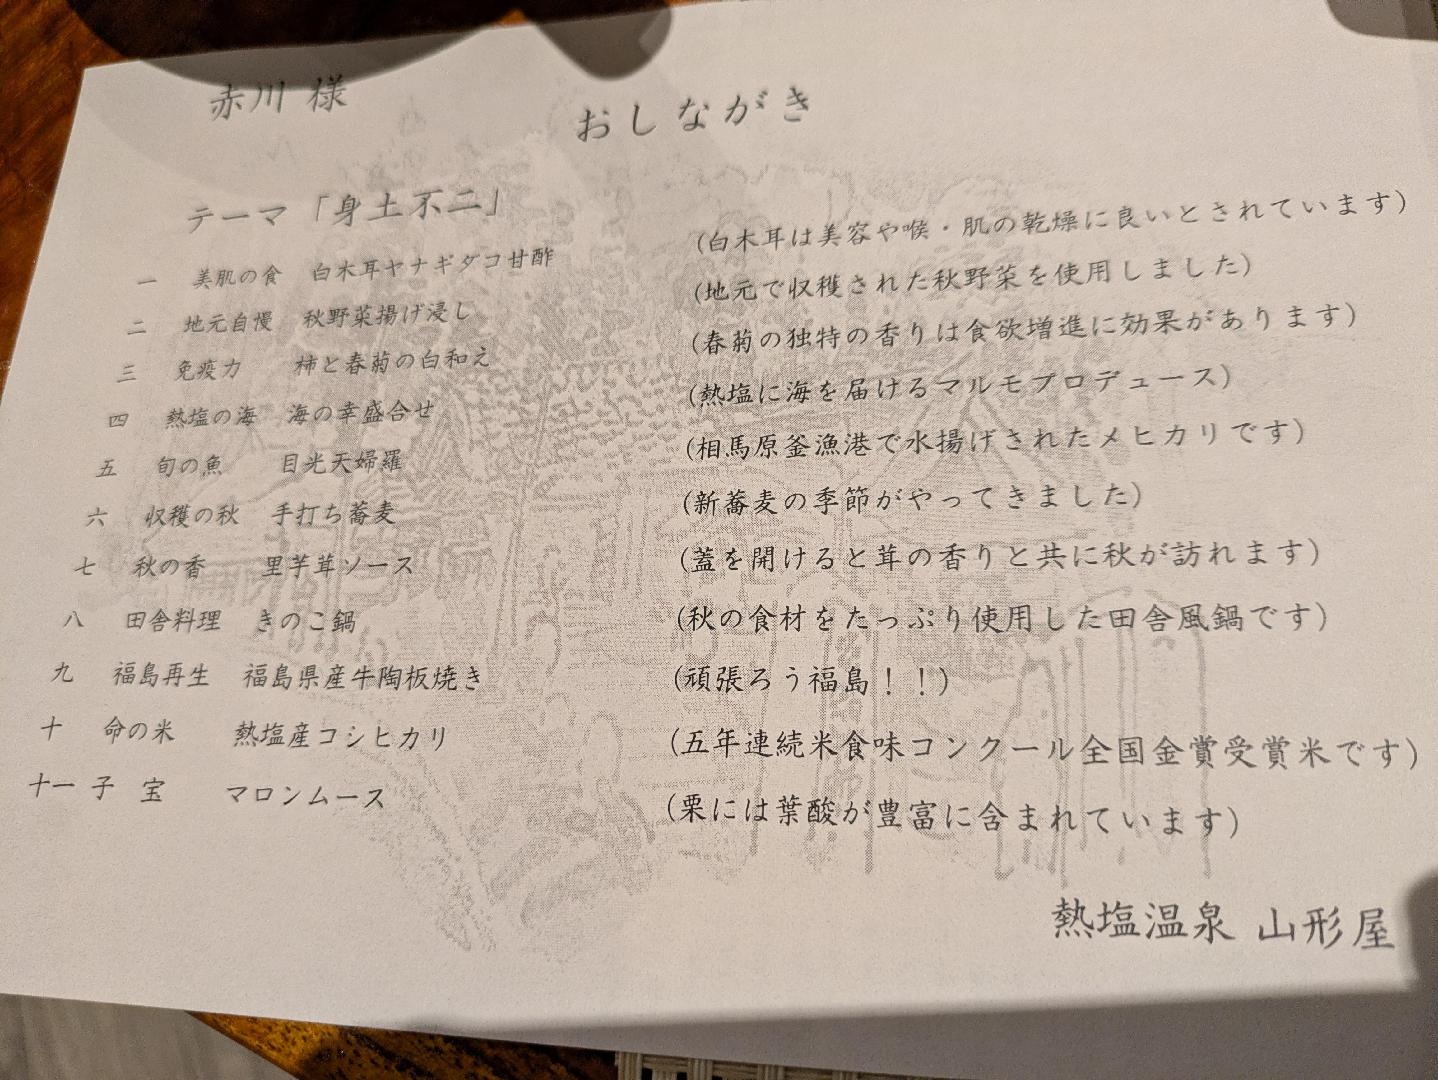 赤川 様
おしながき
テーマ「身土不二」
一 美肌の食 白木耳ヤナギダコ甘酢 (白木耳は美容や喉・肌の乾燥に良いとされています)
二 地元自慢 秋野菜揚げ浸し (地元で収穫された秋野菜を使用しました)
三 免疫力 柿と春菊の白和え (春菊の独特の香りは食欲増進に効果があります)
四 熱塩の海 海の幸盛合せ (熱塩に海を届けるマルモプロデュース)
五 旬の魚 目光天婦羅 (相馬原釜漁港で水揚げされたメヒカリです)
六 収穫の秋 手打ち蕎麦 (新蕎麦の季節がやってきました)
七 秋の香 里芋茸ソース (蓋を開けると茸の香りと共に秋が訪れます)
八 田舎料理 きのこ鍋 (秋の食材をたっぷり使用した田舎風鍋です)
九 福島再生 福島県産牛陶板焼き (頑張ろう福島！！)
十 命の米 熱塩産コシヒカリ (五年連続米食味コンクール全国金賞受賞米です)
十一 子 宝 マロンムース (栗には葉酸が豊富に含まれています)
熱塩温泉 山形屋